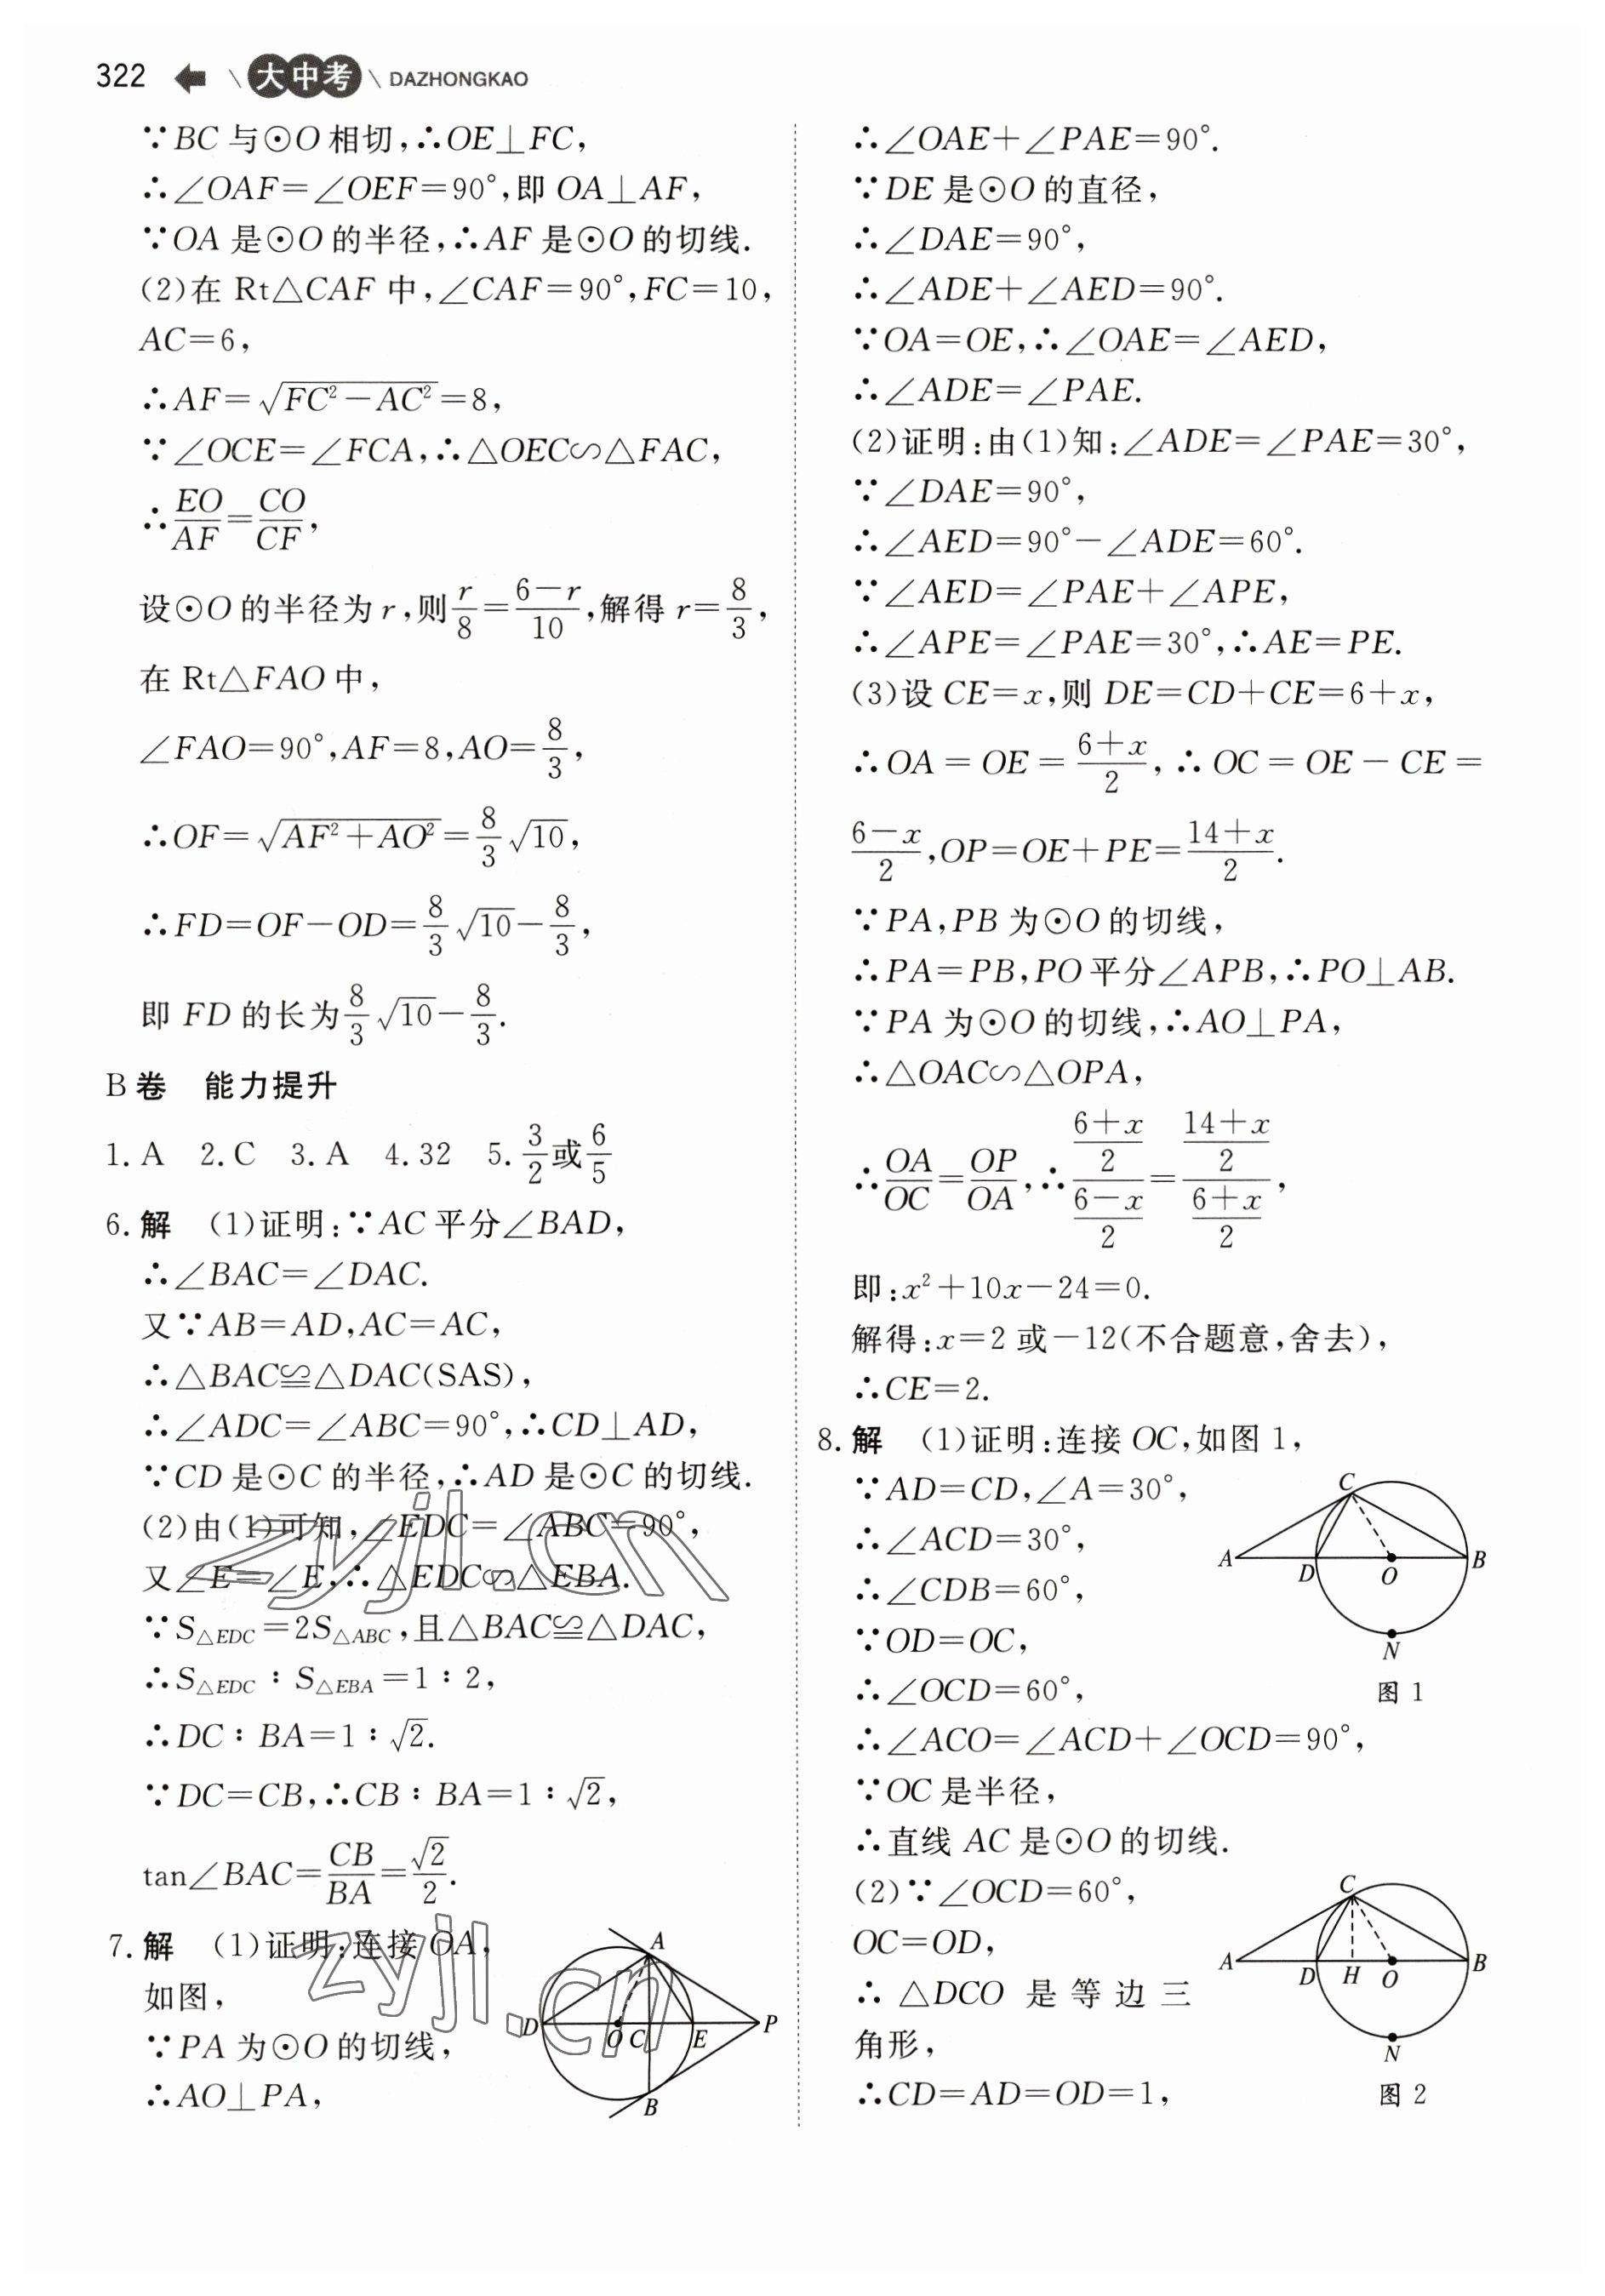 322 大中考 DAZHONGKAO
∵BC与⊙O相切,∴OE⊥FC,
∴∠OAF=∠OEF=90°,即OA⊥AF,
∵OA是⊙O的半径,∴AF是⊙O的切线.
(2)在Rt△CAF中,∠CAF=90°,FC=10,
AC=6,
∴AF=√(FC²-AC²)=8,
∵∠OCE=∠FCA,∴△OEC∽△FAC,
∴EO/AF=CO/CF,
设⊙O的半径为r,则r/8=(6-r)/10,解得r=8/3,
在Rt△FAO中,
∠FAO=90°,AF=8,AO=8/3,
∴OF=√(AF²+AO²)=8/3√10,
∴FD=OF-OD=8/3√10-8/3,
即FD的长为8/3√10-8/3.
B卷 能力提升
1.A 2.C 3.A 4.32 5.3/2或6/5
6.解 (1)证明:∵AC平分∠BAD,
∴∠BAC=∠DAC.
又∵AB=AD,AC=AC,
∴△BAC≌△DAC(SAS),
∴∠ADC=∠ABC=90°,∴CD⊥AD,
∵CD是⊙C的半径,∴AD是⊙C的切线.
(2)由(1)可知,∠EDC=∠ABC=90°,
又∠E=∠E,∴△EDC∽△EBA.
∵S△EDC=2S△ABC,且△BAC≌△DAC,
∴S△EDC∶S△EBA=1∶2,
∴DC∶BA=1∶√2.
∵DC=CB,∴CB∶BA=1∶√2,
tan∠BAC=CB/BA=√2/2.
7.解 (1)证明:连接OA,
如图,
∵PA为⊙O的切线,
∴AO⊥PA,
A
D O C E P
B
∴∠OAE+∠PAE=90°.
∵DE是⊙O的直径,
∴∠DAE=90°,
∴∠ADE+∠AED=90°.
∵OA=OE,∴∠OAE=∠AED,
∴∠ADE=∠PAE.
(2)证明:由(1)知:∠ADE=∠PAE=30°,
∵∠DAE=90°,
∴∠AED=90°-∠ADE=60°.
∵∠AED=∠PAE+∠APE,
∴∠APE=∠PAE=30°,∴AE=PE.
(3)设CE=x,则DE=CD+CE=6+x,
∴OA=OE=(6+x)/2,∴OC=OE-CE=
(6-x)/2,OP=OE+PE=(14+x)/2.
∵PA,PB为⊙O的切线,
∴PA=PB,PO平分∠APB,∴PO⊥AB.
∵PA为⊙O的切线,∴AO⊥PA,
∴△OAC∽△OPA,
∴OA/OC=OP/OA,∴((6+x)/2)/((6-x)/2)=((14+x)/2)/((6+x)/2),
即:x²+10x-24=0.
解得:x=2或-12(不合题意,舍去),
∴CE=2.
8.解 (1)证明:连接OC,如图1,
∵AD=CD,∠A=30°,
∴∠ACD=30°,
∴∠CDB=60°,
∵OD=OC,
∴∠OCD=60°,
∴∠ACO=∠ACD+∠OCD=90°,
∵OC是半径,
∴直线AC是⊙O的切线.
C
A D O B
N
图1
(2)∵∠OCD=60°,
OC=OD,
∴△DCO是等边三
角形,
∴CD=AD=OD=1,
C
A D H O B
N
图2
zyjl.cn
zyjl.cn